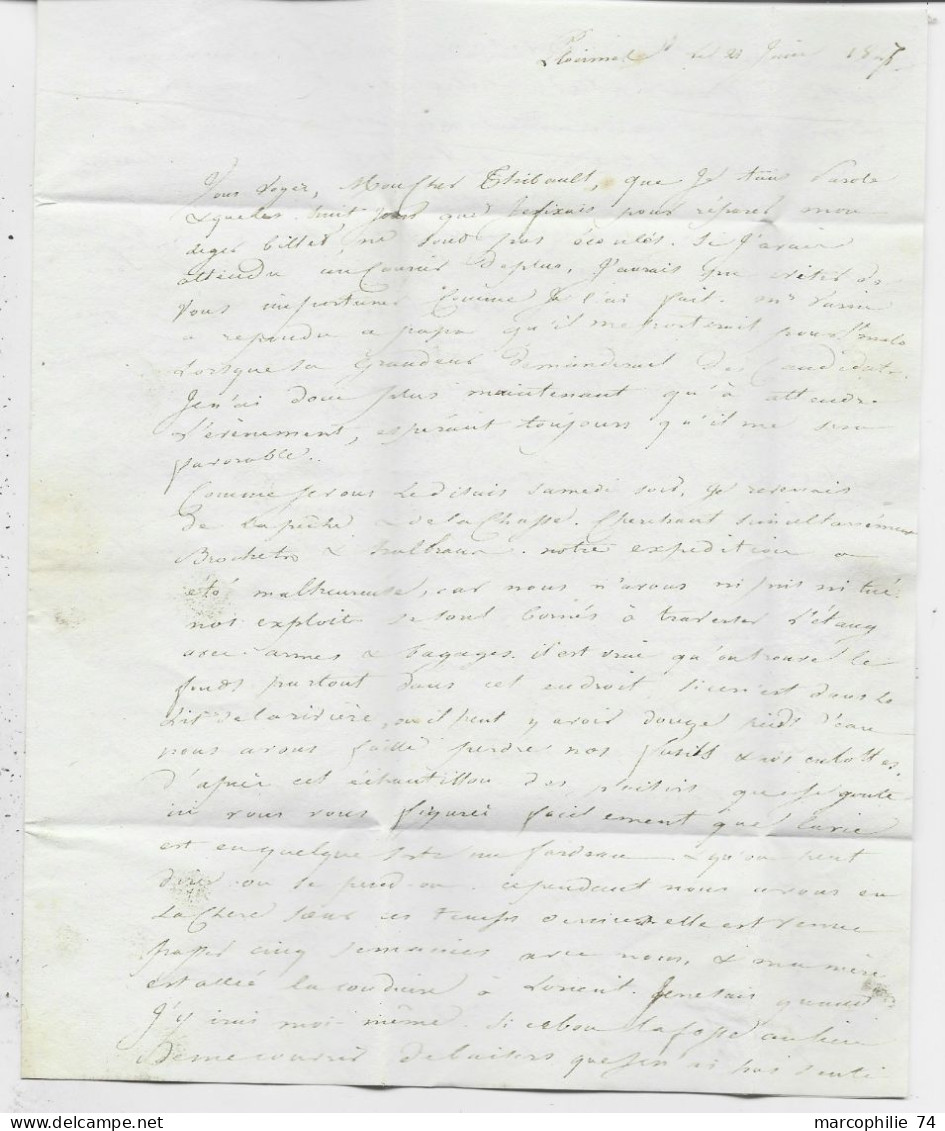 Ploërmel le 21 Juin 18
Vous voyez, Mon Cher Thibault, que je tiens Parole
& que les huit jours que je fixais pour réparer mon
léger billet ne sont pas écoulés. Si j'avais
attendu un Courier de plus, j'aurais pu éviter de
vous importuner Comme je l'ai fait. Mr
a repondu a papa qu'il me porterait pour l'école
Lorsque sa Grandeur demanderait des Candidats.
Je n'ai donc plus maintenant qu'à attendre
L'évènement, espérant toujours qu'il me sera
favorable.
Comme je vous le disais samedi soir, je revenais
de la pêche & de la Chasse. Cherchant simultanément
Brochets & halbrans. notre expedition a
été malheureuse, car nous n'avons ni pris ni tué.
nos exploits se sont bornés à traverser l'étang
avec armes & bagages. il est vrai qu'on trouve le
fond partout dans cet endroit, si ce n'est dans le
Lit de la rivière, ou il peut y avoir douze pieds d'eau
nous avons failli perdre nos fusils & nos culottes.
d'après cet échantillon des plaisirs que je goute
ici vous vous figurez facilement que la vie
est en quelque sorte un fardeau & qu'on peut
dire ou se pend-on. cependant nous avons eu
La Chere sœur ces temps derniers elle est venue
passer cinq semaines avec nous, & ma mère
est allée la conduire à Lorient. Je ne sais quand
J'y irai moi-même. Si
de me couvrir de lauriers que je n'ai pas
marcophilie 74